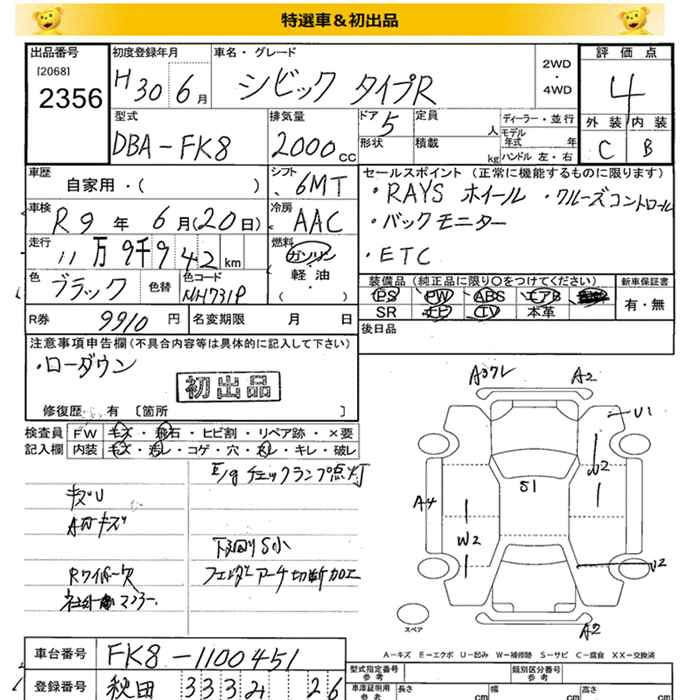 特選車＆初出品
出品番号 初度登録年月 車名・グレード 2WD ・ 4WD 評価点
[2068]
2356 H30 6月 シビック タイプR 4
型式 排気量 ドア 5 定員 人 ディーラー・並行 外装 内装
DBA-FK8 2000cc 形状 積載 kg モデル年式 年 ハンドル 左・右 C B
車歴 自家用・( ) シフト 6MT セールスポイント (正常に機能するものに限ります)
・RAYS ホイール ・クルーズコントロール
車検 R9年 6月(20日) 冷房 AAC ・バックモニター
走行 11万9千942km 燃料 ガソリン 軽・油 ( ) ・ETC
色 ブラック 色替 色コード NH731P 装備品 (純正品に限り○をつけてください) 新車保証書
PS PW ABS エアB
SR ナビ TV 本革 有・無
R券 9910円 名変期限 月 日 後日品
注意事項申告欄(不具合内容等は具体的に記入して下さい)
・ローダウン
初出品
修復歴 有 [箇所 ]
検査員 FW キズ・飛石・ヒビ割・リペア跡・×要
記入欄 内装 キズ・汚レ・コゲ・穴・スレ・キレ・破レ
E/g チェックランプ点灯
キズU
下回りS小
Rワイパー欠 フェンダーアーチ切断加工
社外マフラー
A2
U1
W2
S1
A4
W2
U2
A2
スペア
A－キズ E－エクボ U－凹み W－補修跡 S－サビ C－腐食 XX－交換済
車台番号 FK8-1100451
登録番号 秋田 333 み 26
型式指定番号 参考 類別区分番号 参考
車庫証明用 参考 長さ cm 幅 cm 高さ cm